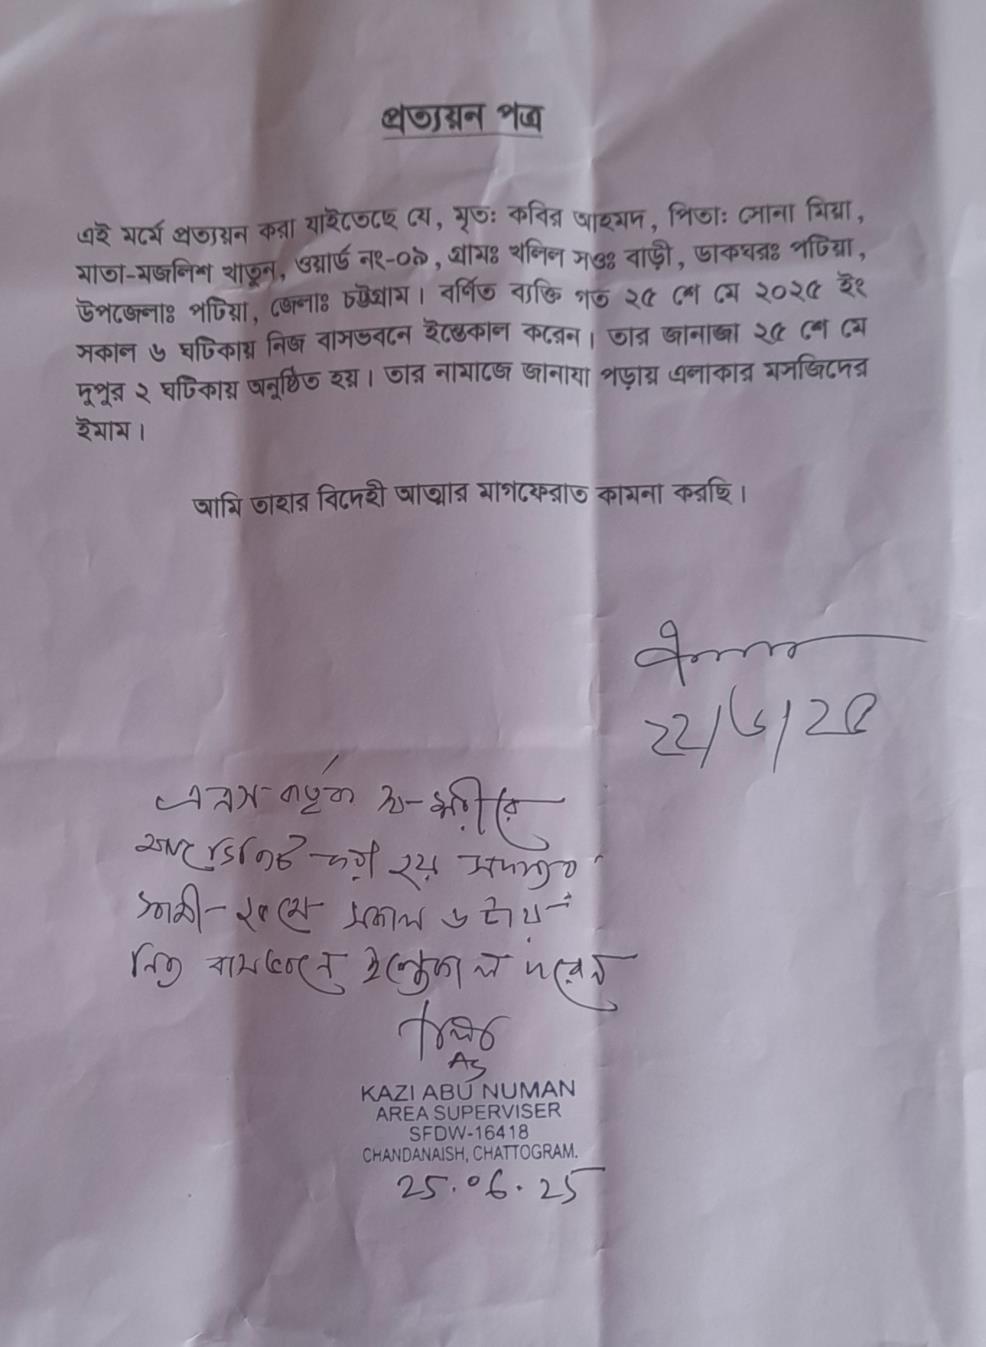 প্রত্যয়ন পত্র
এই মর্মে প্রত্যয়ন করা যাইতেছে যে, মৃতঃ কবির আহমদ, পিতাঃ সোনা মিয়া,
মাতা-মজলিশ খাতুন, ওয়ার্ড নং-০৯, গ্রামঃ খলিল সওঃ বাড়ী, ডাকঘরঃ পটিয়া,
উপজেলাঃ পটিয়া, জেলাঃ চট্টগ্রাম। বর্ণিত ব্যক্তি গত ২৫ শে মে ২০২৫ ইং
সকাল ৬ ঘটিকায় নিজ বাসভবনে ইন্তেকাল করেন। তার জানাজা ২৫ শে মে
দুপুর ২ ঘটিকায় অনুষ্ঠিত হয়। তার নামাজে জানাযা পড়ায় এলাকার মসজিদের
ইমাম।
আমি তাহার বিদেহী আত্মার মাগফেরাত কামনা করছি।
22/৬/2৫
এ এস কর্তৃক স্ব-শরীরে
হয়
২৫ মে সকাল ৬ টায়
নিজ বাসভবনে ইন্তেকাল করেন
AS
KAZI ABU NUMAN
AREA SUPERVISER
SFDW-16418
CHANDANAISH, CHATTOGRAM.
25.06.25